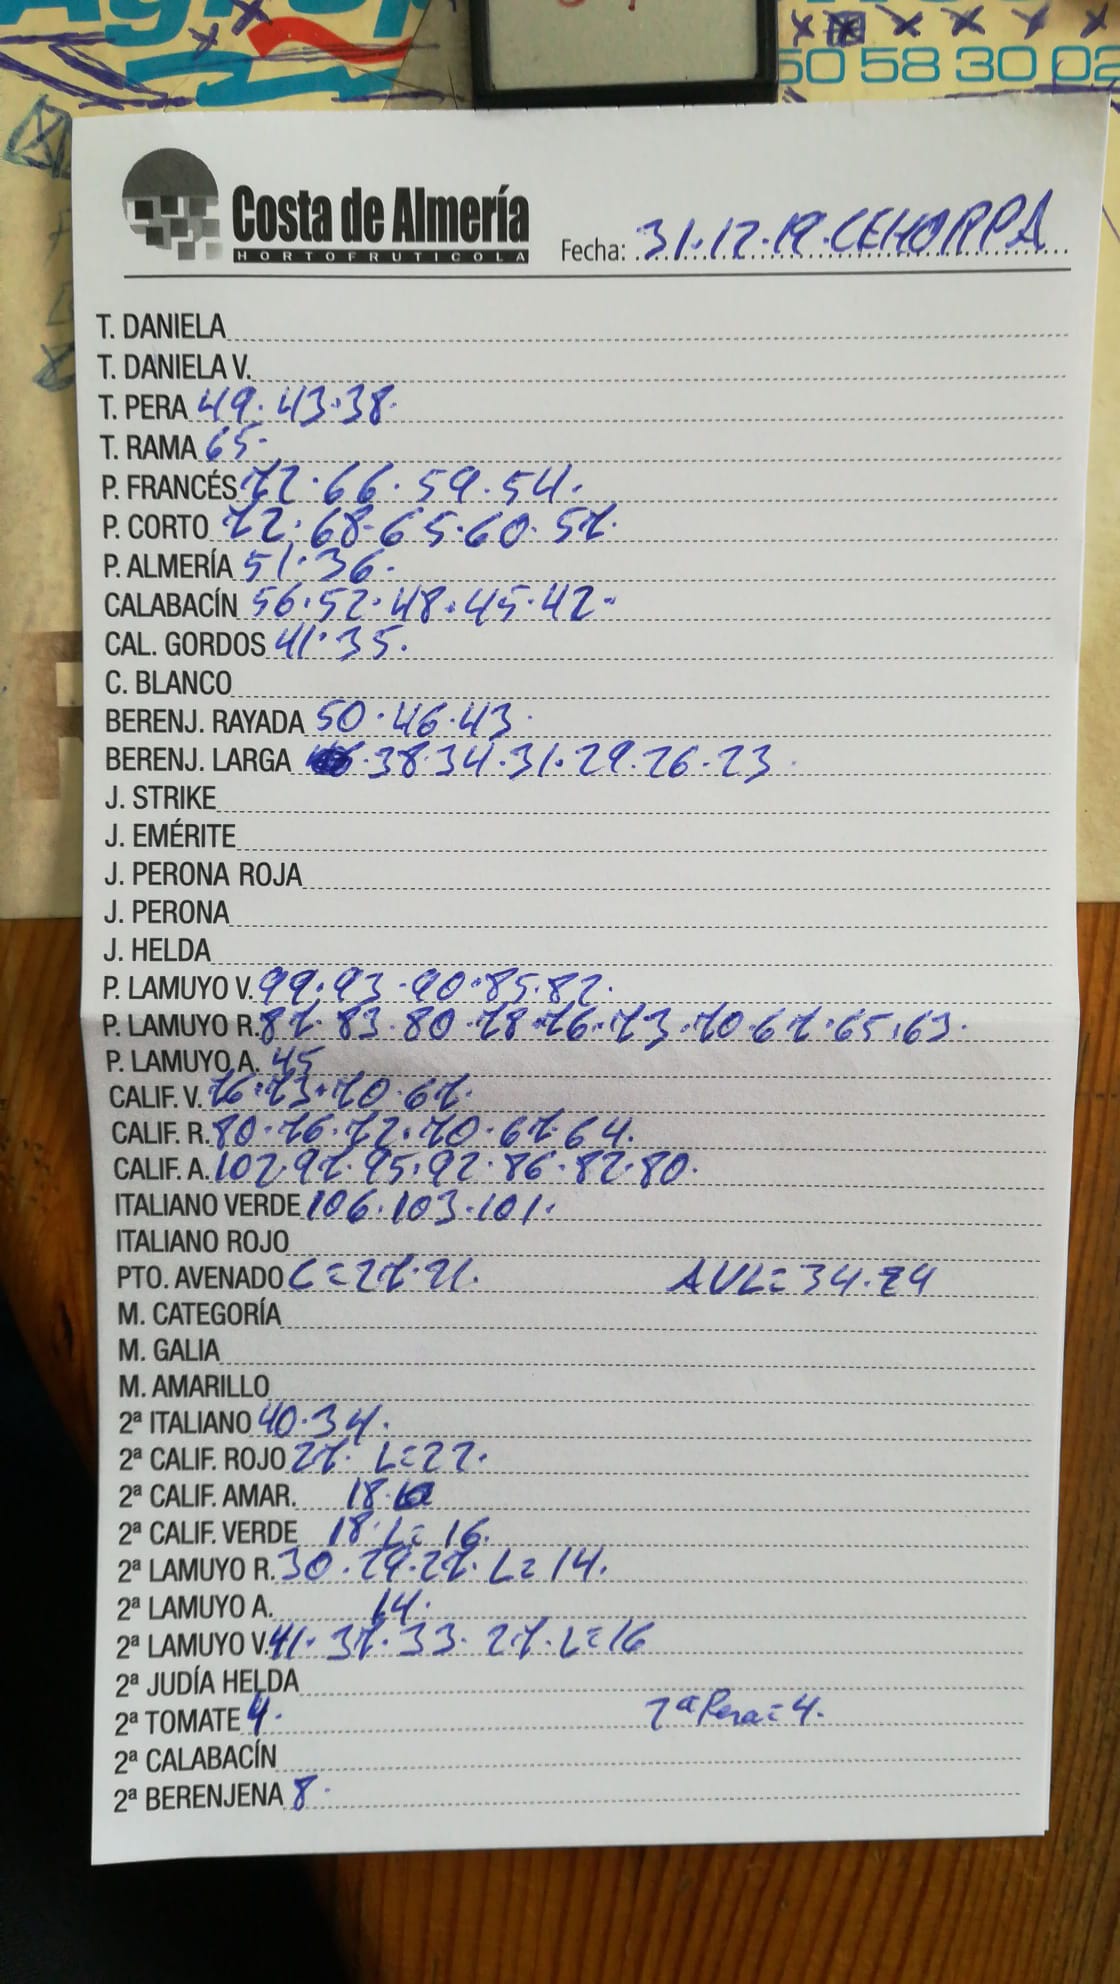 50 58 30 02
Costa de Almería
HORTOFRUTICOLA
Fecha: 31.12.19. CEHORPA
T. DANIELA
T. DANIELA V.
T. PERA 49. 43. 38.
T. RAMA 65.
P. FRANCÉS 72. 66. 59. 54.
P. CORTO 72. 68. 65. 60. 57.
P. ALMERÍA 51. 36.
CALABACÍN 56. 52. 48. 45. 42.
CAL. GORDOS 41. 35.
C. BLANCO
BERENJ. RAYADA 50. 46. 43.
BERENJ. LARGA 38. 34. 31. 29. 26. 23.
J. STRIKE
J. EMÉRITE
J. PERONA ROJA
J. PERONA
J. HELDA
P. LAMUYO V. 99. 93. 90. 85. 82.
P. LAMUYO R. 87. 83. 80. 78. 76. 73. 70. 67. 65. 63.
P. LAMUYO A. 45
CALIF. V. 76. 73. 70. 67.
CALIF. R. 80. 76. 72. 70. 67. 64.
CALIF. A. 102. 97. 95. 92. 86. 82. 80.
ITALIANO VERDE 106. 103. 101.
ITALIANO ROJO
PTO. AVENADO C= 27. 21. AVL= 34. 24
M. CATEGORÍA
M. GALIA
M. AMARILLO
2ª ITALIANO 40. 34.
2ª CALIF. ROJO 27. L= 22.
2ª CALIF. AMAR. 18.
2ª CALIF. VERDE 18. L= 16.
2ª LAMUYO R. 30. 29. 27. L= 14.
2ª LAMUYO A. 14.
2ª LAMUYO V. 41. 37. 33. 27. L= 16
2ª JUDÍA HELDA
2ª TOMATE 4. 2ª Pera= 4.
2ª CALABACÍN
2ª BERENJENA 8.